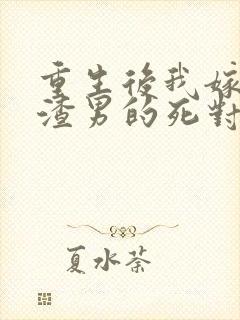 重生後我嫁
渣男的死對
夏水荼